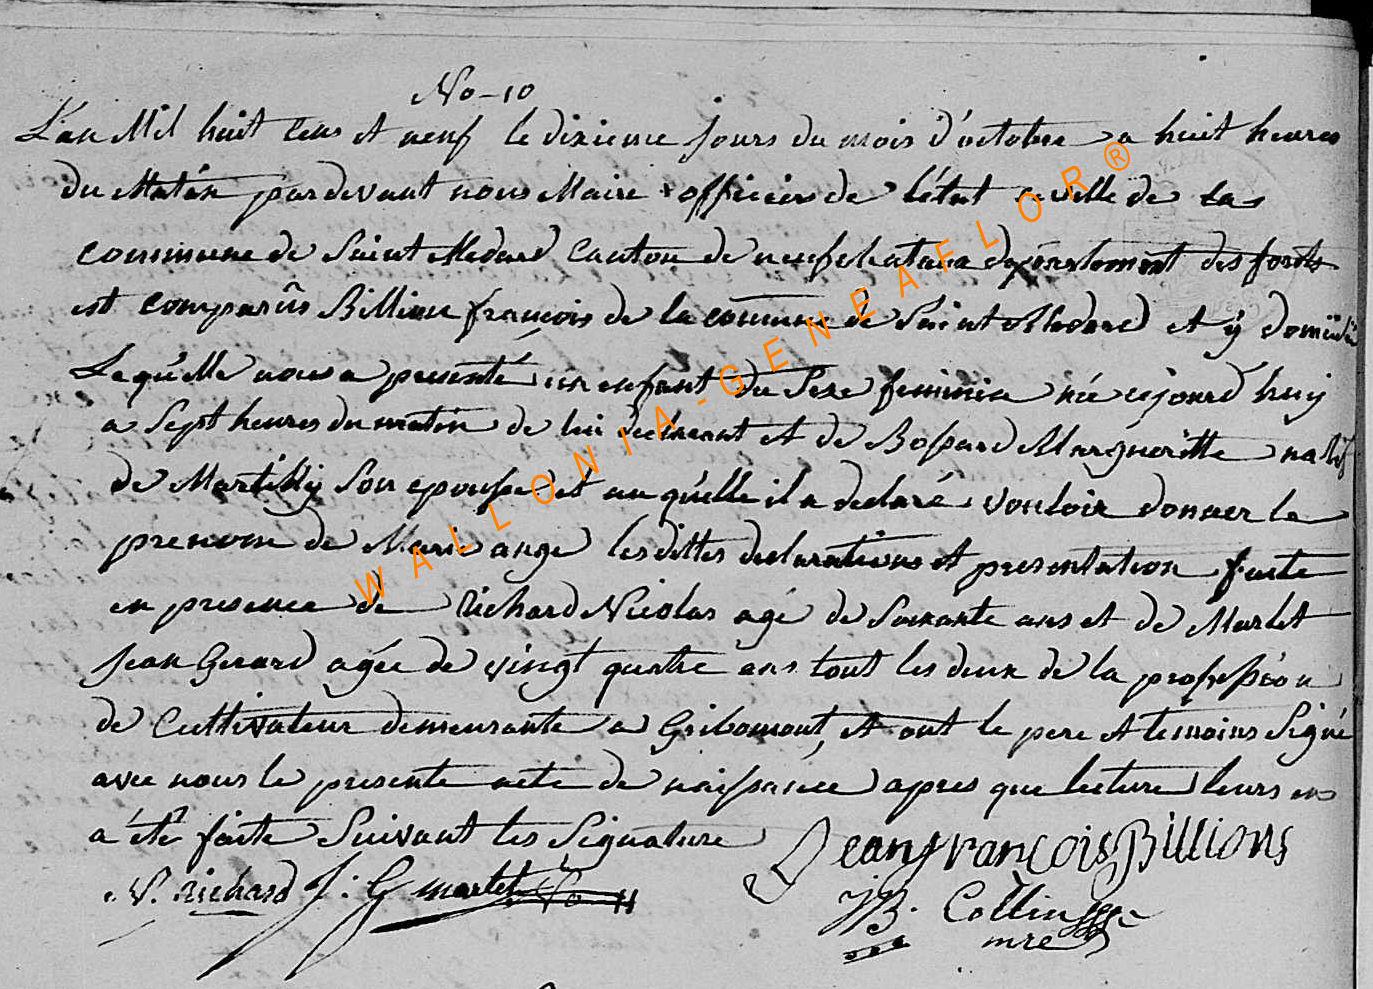 No-10
L'an Mil huit cens et neuf le dixieme jours du mois d'octobre a huit heures
du Matin pardevant nous Maire officier de l'état civille de la
commune de Saint Medard Canton de neufchateau département des forets
est comparûs Billion françois de la commune de Saint Medard et y domicilié
Lequelle nous a presenté un enfant du Sexe feminin née cejourd huy
a Sept heures du matin de lui declarant et de Bossard Margueritte natif
de Martilly Son epousse et auquelle il a declaré vouloir donner le
prenom de Marie ange les dittes declarations et presentation faite
en presence de Richard Nicolas agé de Soixante ans et de Marlet
Jean Gerard agée de vingt quatre ans tout les deux de la profession
de Cultivateur demeurante a Gribomont, et ont le pere et temoins Signé
avec nous le presente acte de naissance apres que lecture leurs en
a été faite Suivant les Signature
Jean françois Billions
N. Richard J: G marlet
JB. Collin
mre
WALLONIA-GENEAFLOR®